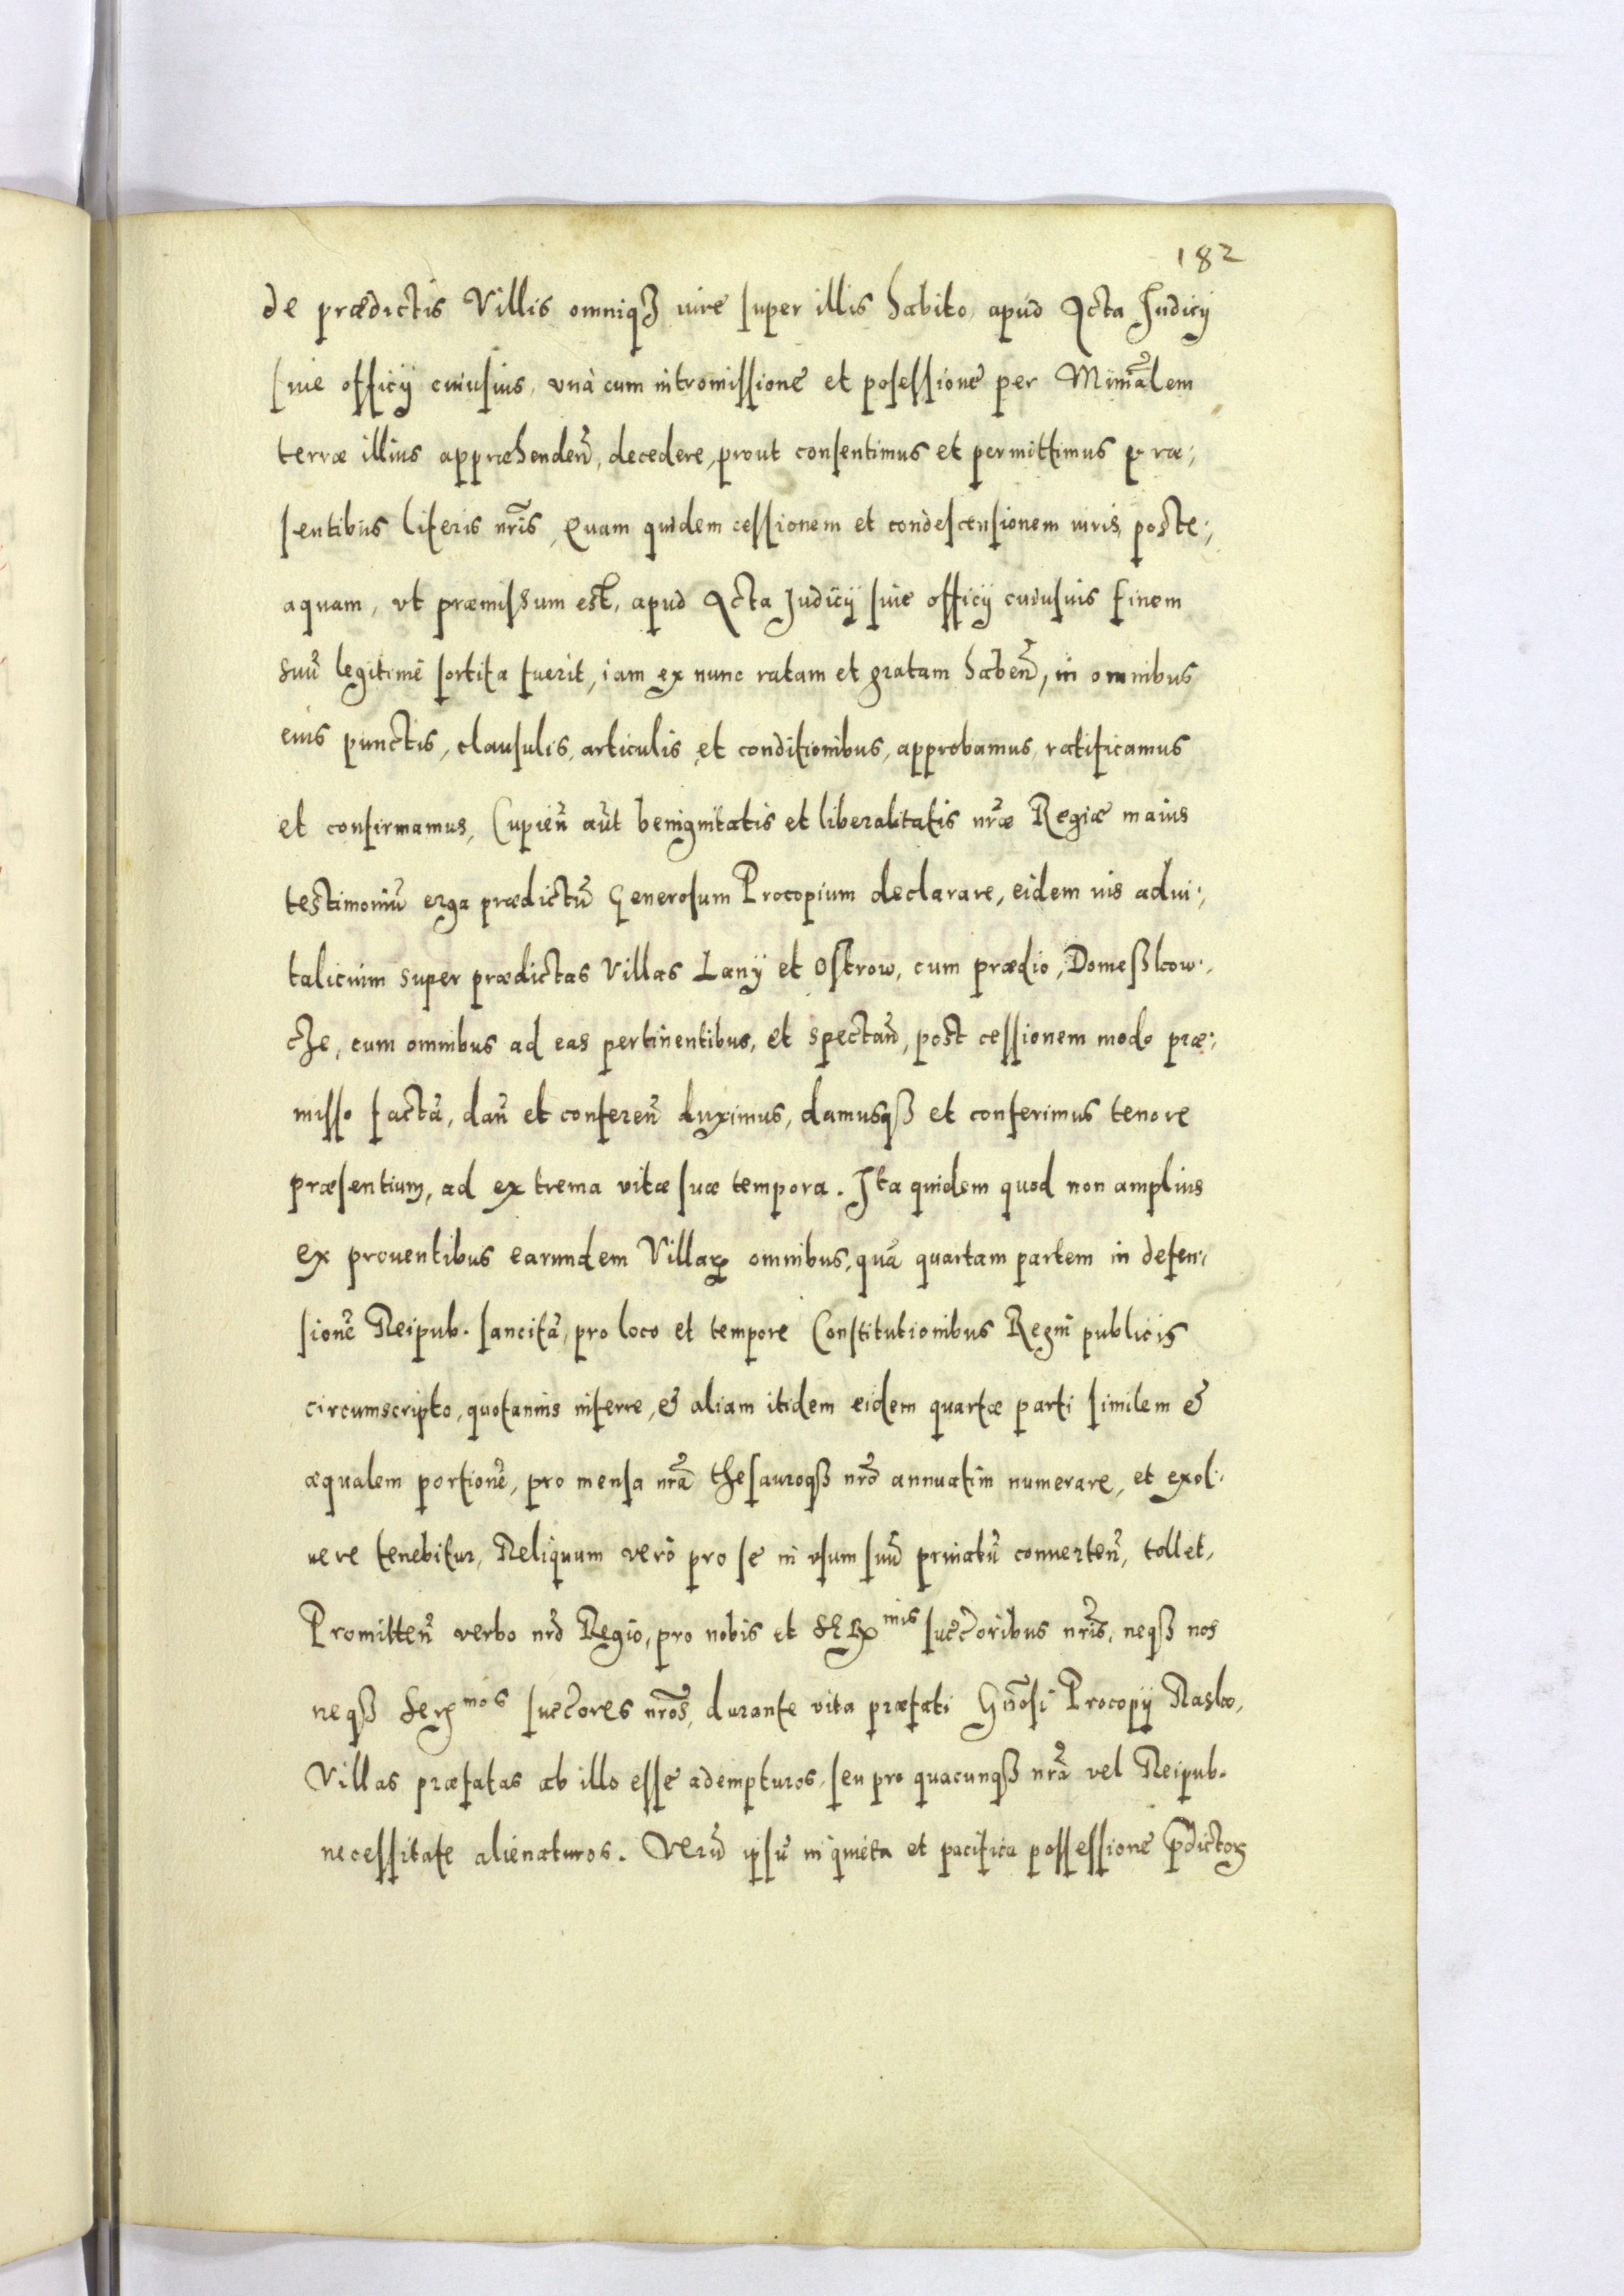 182
de prædictis Villis omniqȝ iure super illis habito, apud Acta Judicij
siue officij cuiusuis, vnà cum intromissione et posessione per Minrãlem
terræ illius appræhendeñ, decedere, prout consentimus et permittimus præ:,
sentibus literis nr̃is, Quam quidem cessionem et condescensionem iuris, poste:,
aquam, vt præmissum est, apud Acta Judicij siue officij cuiusuis finem
suũ legitimè sortita fuerit, iam ex nunc ratam et gratam habeñ, in omnibus
eius punctis, clausulis, articulis et conditionibus, approbamus, ratificamus
et confirmamus, Cupieñ aũt benignitatis et liberalitatis nr̃æ Regiæ maius
testimoniũ erga prædictũ Generosum Procopium declarare, eidem ius adui:,
talicium super prædictas Villas Lanÿ et Ostrow, cum prædio, Domeßkow:,
cze, cum omnibus ad eas pertinentibus, et spectañ, post cessionem modo præ:,
misso factã, dañ et confereñ duximus, damusqß et conferimus tenore
præsentium, ad extrema vitæ suæ tempora. Ita quidem quod non amplius
ex prouentibus earundem Villaꝝ omnibus, quã quartam partem in defen:,
sionẽ Reipub. sancitã, pro loco et tempore Constitutionibus Regni publicis
circumscripto, quotannis inferre, & aliam itidem eidem quartæ parti similem &
æqualem portionẽ, pro mensa nr̃a thesauroqß nr̃o annuatim numerare, et exol:,
uere tenebitur, Reliquum verò pro se in vsum suũ priuatũ conuerteñ, tollet,
Promitteñ verbo nr̃o Regio, pro nobis et Serᵐⁱˢ succ̃oribus nr̃is, neqß nos
neqß Serᵐᵒˢ succ̃ores nr̃os, durante vita præfati Gñosi Procopij Rasko,
Villas præfatas ab illo esse adempturos, seu pro quacunqß nr̃a vel Reipub.
necessitate alienaturos. Verũ ipsũ in quieta et pacifica possessione p̃dictoꝝ